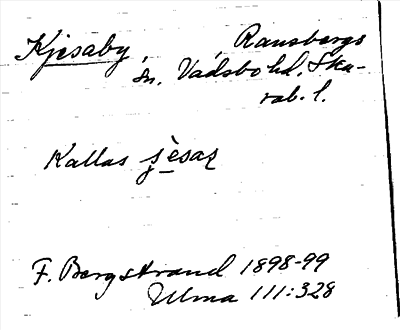 Kjesaby, Ransbergs
sn, Vadsbo hd, Ska-
rab. l.
Kallas
F. Bergstrand 1898-99
Ulma 111:328